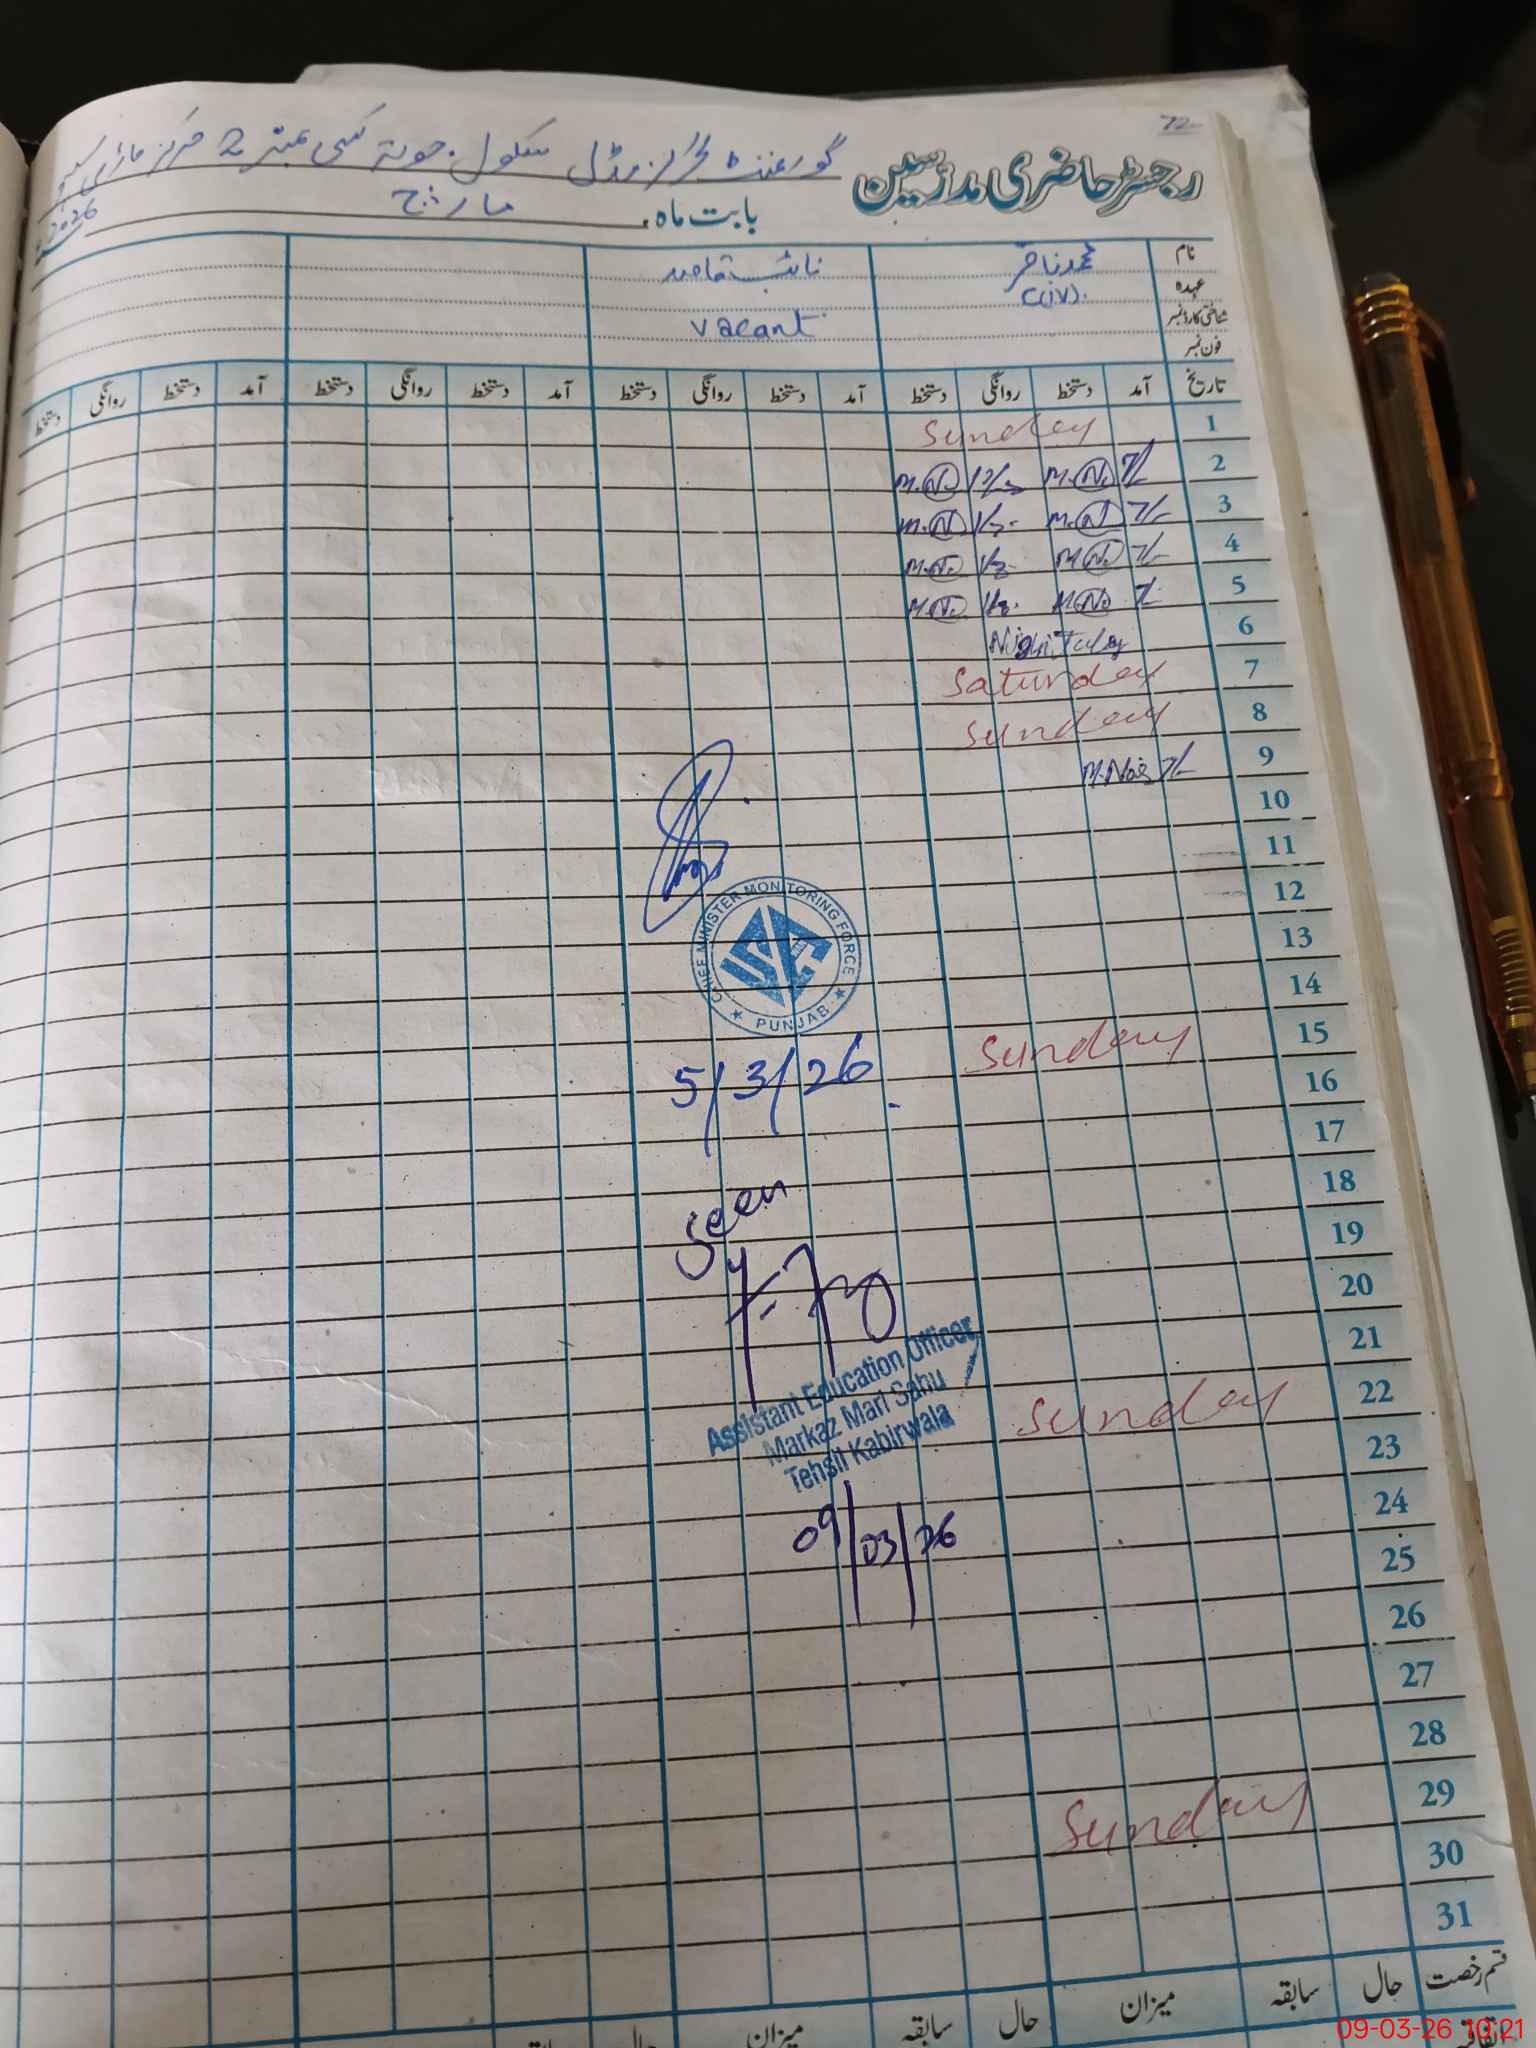 72
رجسٹر حاضری مدرسین گورنمنٹ گرلز مڈل سکول جوتہ کسی نمبر 2 مرکز ماڑی سہو
بابت ماہ مارچ 2026
نام محمد نائب قاصد
عہدہ C(iv).
شناختی کارڈ نمبر vacant
فون نمبر
تاریخ آمد دستخط روانگی دستخط آمد دستخط روانگی دستخط آمد دستخط روانگی دستخط آمد دستخط روانگی دستخط
1 Sunday
2 7/- M.N. M.N.
3 7/- M.N. M.N.
4 7/- M.N. M.N.
5 7/- M.N. M.N.
6 Night
7 Saturday
8 Sunday
9 7/-
10
11
12
CHIEF MINISTER MONITORING FORCE
PUNJAB
13
14
15 Sunday
16
5/3/26
17
18
Seen
19
20
21
Assistant Education Officer
Markaz Mari Sahu
Tehsil Kabirwala
22 Sunday
23
24
09/03/26
25
26
27
28
29 Sunday
30
31
قسم رخصت حال سابقہ میزان حال سابقہ میزان حال
09-03-26 10:21